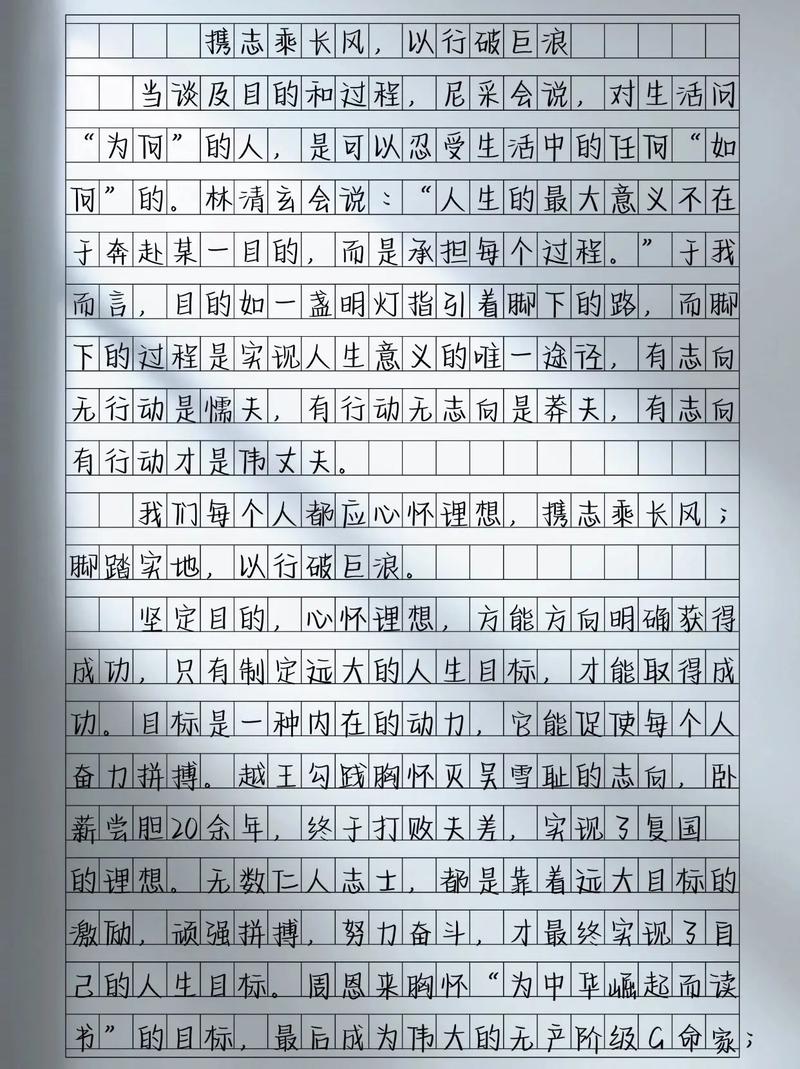 携志乘长风，以行破巨浪
当谈及目的和过程，尼采会说，对生活问
“为何”的人，是可以忍受生活中的任何“如
何”的。林清玄会说：“人生的最大意义不在
于奔赴某一目的，而是承担每个过程。”于我
而言，目的如一盏明灯指引着脚下的路，而脚
下的过程是实现人生意义的唯一途径，有志向
无行动是懦夫，有行动无志向是莽夫，有志向
有行动才是伟丈夫。
我们每个人都应心怀理想，携志乘长风；
脚踏实地，以行破巨浪。
坚定目的，心怀理想，方能方向明确获得
成功，只有制定远大的人生目标，才能取得成
功。目标是一种内在的动力，它能促使每个人
奋力拼搏。越王勾践胸怀灭吴雪耻的志向，卧
薪尝胆20余年，终于打败夫差，实现了复国
的理想。无数仁人志士，都是靠着远大目标的
激励，顽强拼搏，努力奋斗，才最终实现了自
己的人生目标。周恩来胸怀“为中华崛起而读
书”的目标，最后成为伟大的无产阶级G命家；